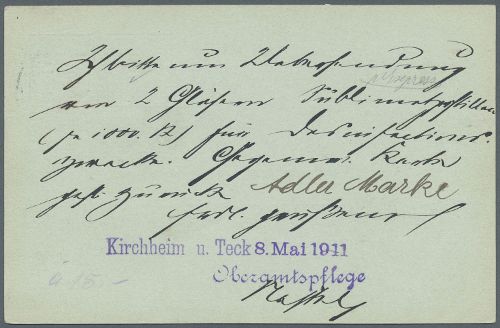 Ich bitte um Uebersendung
von 2 Gläsern Sublimatpastillen
(je 1000. St) für Desinfections-
zwecke. Gegenw. Karte
gefl. zurück Adler Marke
frdl. grüßend
Kirchheim u. Teck 8. Mai 1911
Oberamtspflege